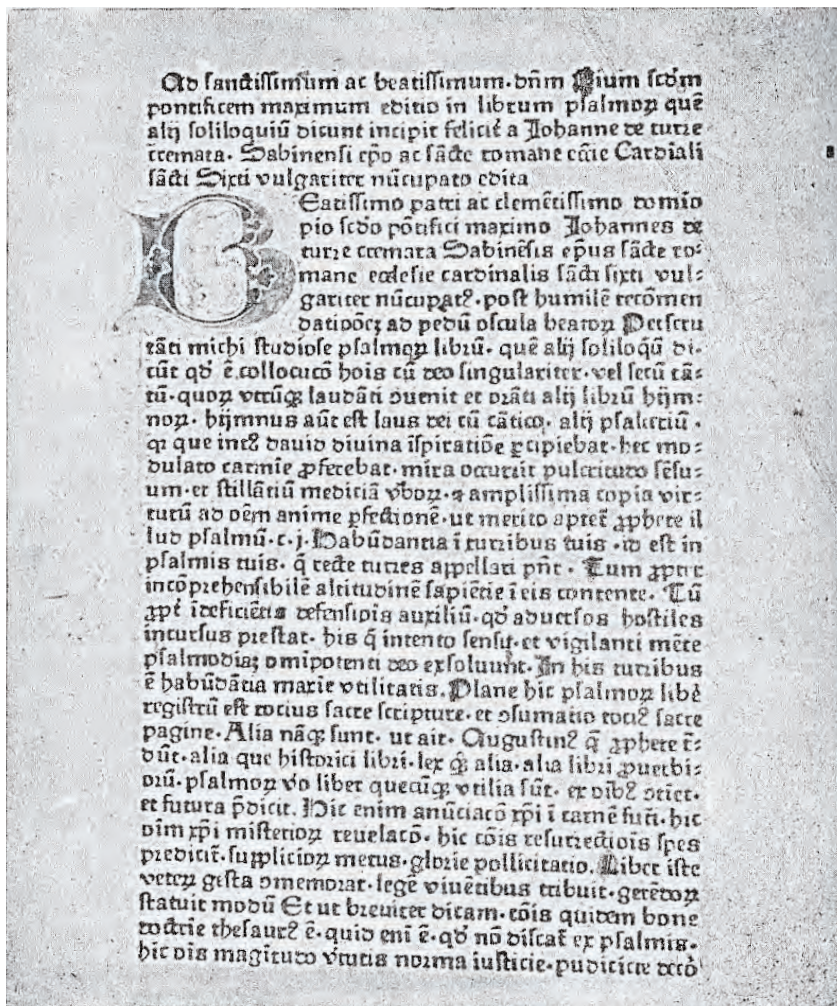 Ad sanctissimum ac beatissimum. dñm Pium scdm
pontificem maximum editio in librum psalmoꝝ quē
alij soliloquiū dicunt incipit feliciť a Johanne de turre
cremata. Sabinensi epo ac sācte romane eccie Cardiali
sācti Sixti vulgariter nūcupato edita
BEatissimo patri ac clemētissimo domino
pio scdo pōtifici maximo Johannes de
turre cremata Sabinēsis epus sācte ro-
mane ecclesie cardinalis sācti sixti vul-
gariter nūcupatꝰ. post humilē recōmen
datiōꝫ ad pedū oscula beatoꝝ Perscru
tāti michi studiose psalmoꝝ librū. quē alij soliloqū di-
cūt qd̄ ē collocutō hois cū deo singulariter. vel secū tā-
tū. quoꝝ utrūqꝫ laudāti ɔuenit et orāti alij librū hijm-
noꝝ. hijmnus aūt est laus dei cū cātico. alij psalteriū.
qꝛ que intꝰ dauid diuina īspiratiōe ꝑcipiebat. hec mo-
dulato carmīe ꝓferebat. mira occurrit pulcritudo sēsu-
um. et stillātiū mediciā v̄boꝝ. ⁊ amplissima copia vir-
tutū ad oēm anime ꝑfectionē. ut merito apteť ꝓphete il
lud psalmū. c. j. Habūdantia ī turribus tuis. id est in
psalmis tuis. q̄ recte turres appellari pn̄t. Tum ꝓpter
incōprehensibilē altitudinē sapiētie ī eis contente. Tū
ꝓpť īdeficiētis defensiois auxiliū. qd̄ aduersos hostiles
incursus prestat. his q̄ intento sensu. et vigilanti mēte
psalmodiaꝫ omipotenti deo exsoluunt. In his turribus
ē habūdātia maxie vtilitatis. Plane hic psalmoꝝ libeř
registrū est tocius sacre scripture. et ɔsumatio tociꝰ sacre
pagine. Alia nāqꝫ sunt. ut ait. Augustinꝰ q̄ ꝓphete t̄-
dūt. alia que historici libri. lex qꝫ alia. alia libri ꝓuerbi-
orū. psalmoꝝ v̄o liber quecūqꝫ vtilia sūt. ex oībꝰ ɔtiet.
et futura p̄dicit. Hic enim anūciacō xp̄i ī carnē futī. hic
oīm xp̄i misterioꝝ reuelacō. hic cōis resurrectiois spes
prediciť. supplicioꝝ metus. glorie pollicitatio. Liber iste
veteꝝ gesta ɔmemorat. legē viuētibus tribuit. gerēdoꝝ
statuit modū Et ut breuiter dicam. cōis quidem bone
doctrie thesaurꝰ ē. quid eni ē. qd̄ nō discať ex psalmis.
hic oīs magitudo v̄tutis norma iusticie. pudicicie decō